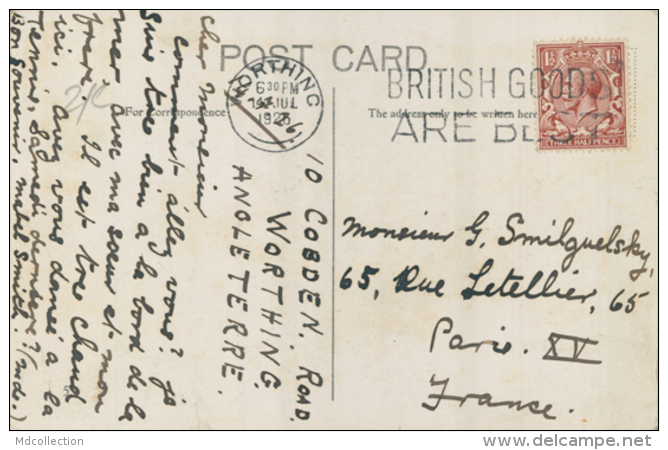 POST CARD
For Correspondence
The address only to be written here
WORTHING
6 30 PM
14 JUL
1926
BRITISH GOODS
ARE BEST
1½
1½
THREE HALF PENCE
10 COBDEN. ROAD.
WORTHING.
ANGLETERRE.
Cher Monsieur
comment allez vous? je
suis tre bien a la bord de la
mer avec ma soeur et mon
frere. Il est tre chaud
ici. Avez vous dansé a la
Tennis, Samedi dernier?
Bon Souvenir, Mabel Smith. (mde.)
Monsieur G. Smilguelsky,
65, Rue Letellier, 65
Paris. XV
France.
Mdcollection
www.delcampe.net